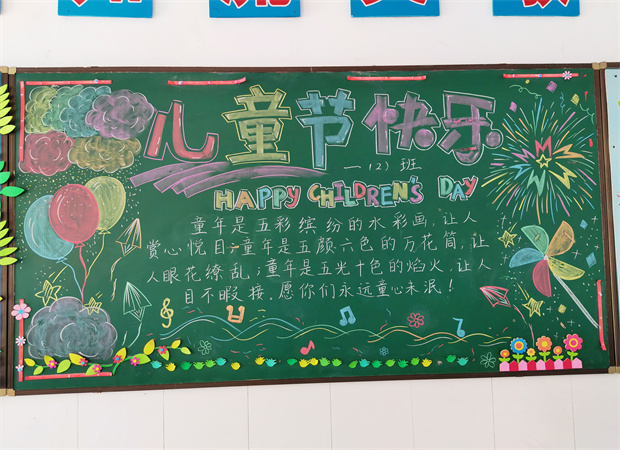 儿童节快乐
一(2)班
HAPPY CHILDREN'S DAY
童年是五彩缤纷的水彩画,让人
赏心悦目;童年是五颜六色的万花筒,让
人眼花缭乱;童年是五光十色的焰火,让人
目不暇接。愿你们永远童心未泯!